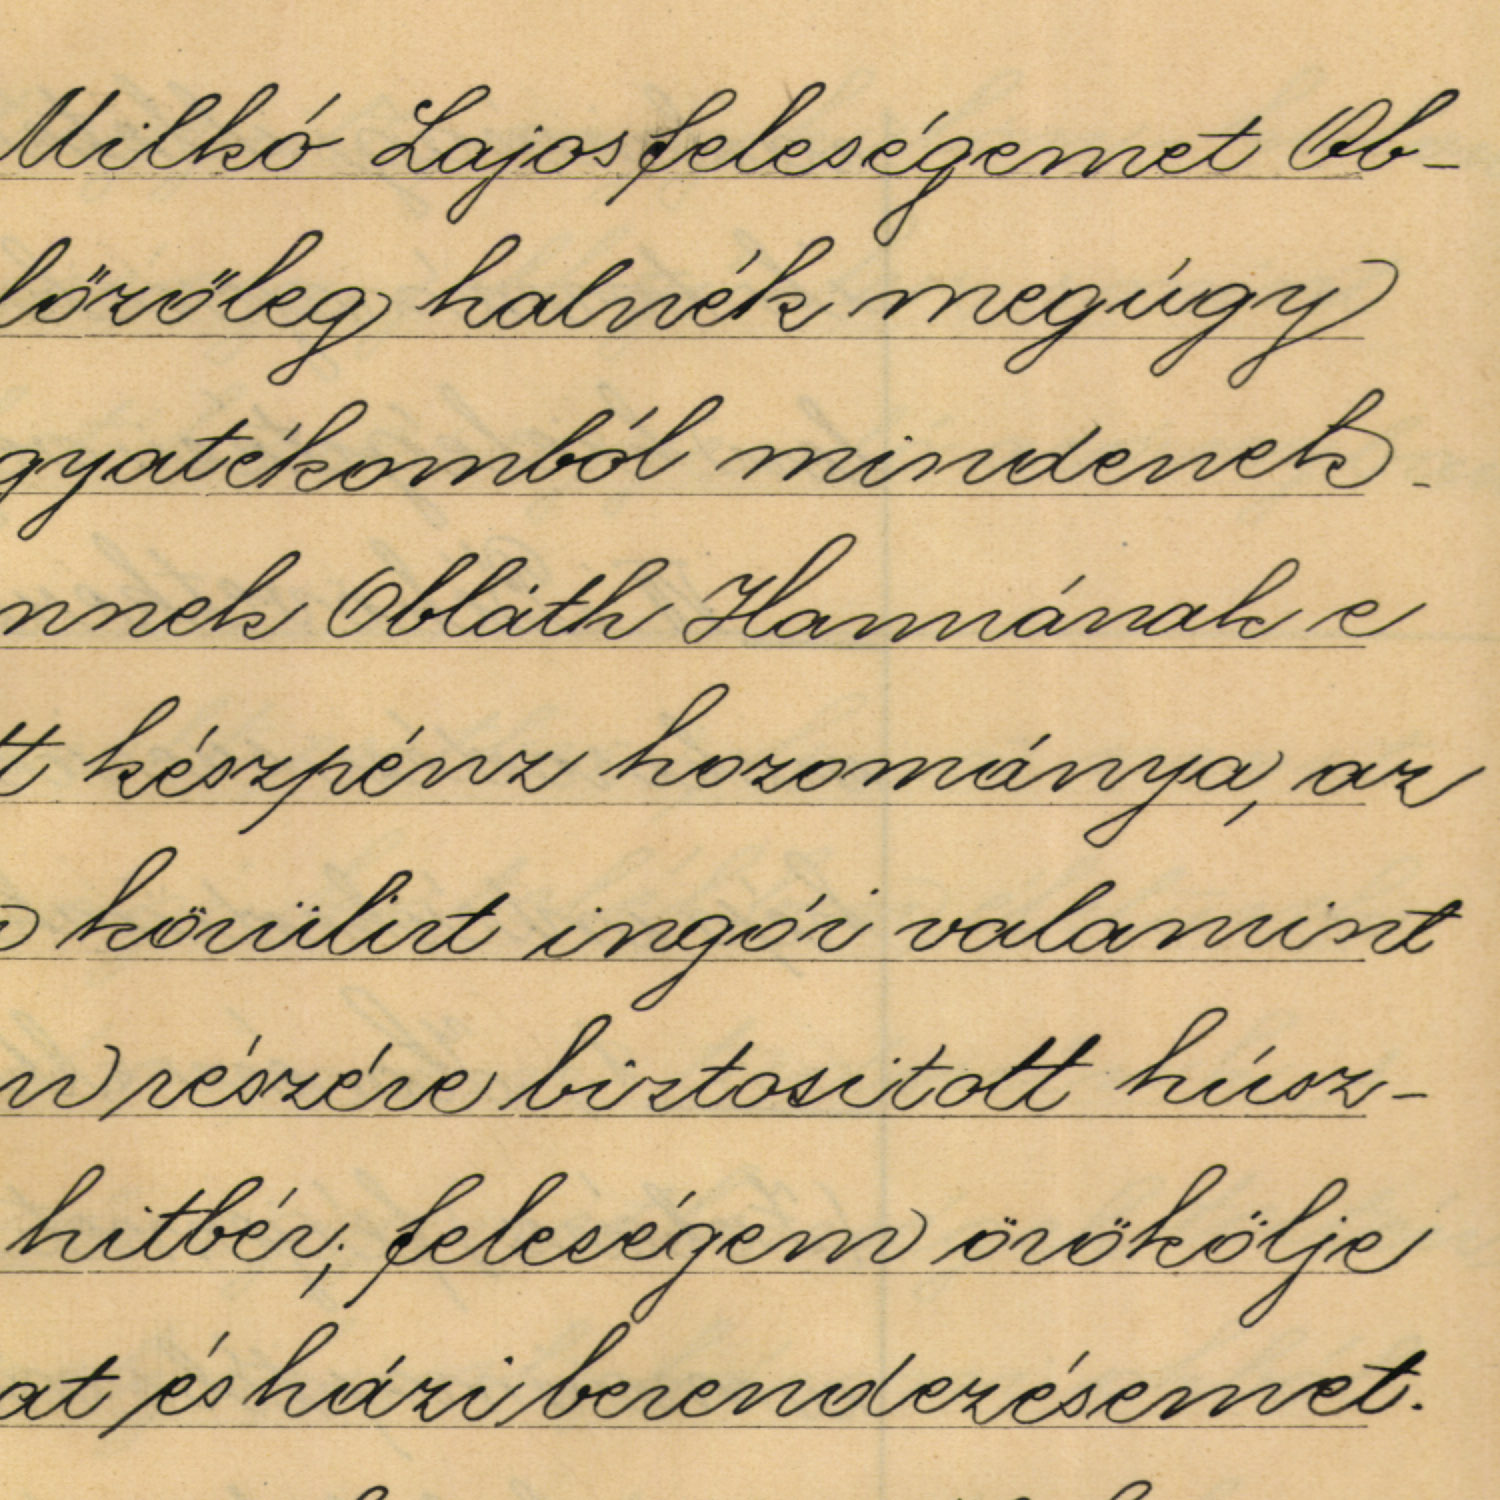 Milkó Lajos feleségemet Ob-
lőzőleg halnék meg úgy
gyatékomból mindenek-
nnek Obláth Hannának e
tt készpénz hozománya, az
körülirt ingói valamint
n részére biztositott húsz-
hitbér, feleségem örökölje
at és házi berendezésemet.